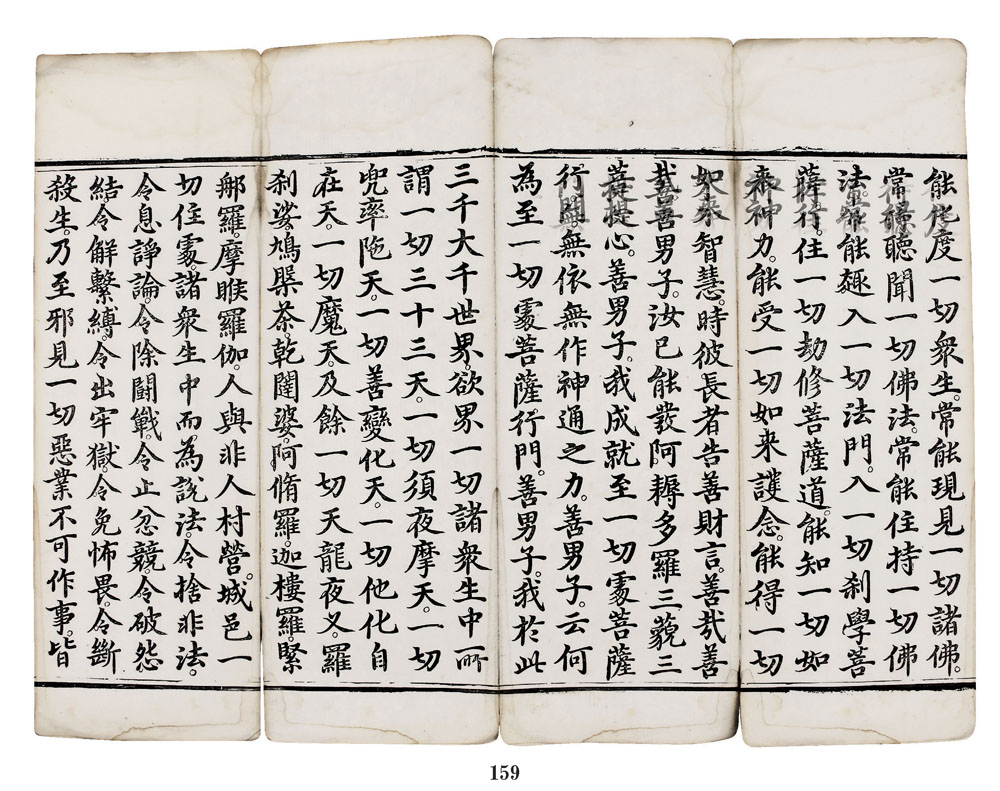 能化度一切衆生。常能現見一切諸佛。
常能聽聞一切佛法。常能住持一切佛
法。常能趣入一切法門。入一切刹學菩
薩行。住一切劫修菩薩道。能知一切如
来神力。能受一切如来護念。能得一切
如来智慧。時彼長者告善財言。善哉善
哉。善男子。汝已能發阿耨多羅三藐三
菩提心。善男子。我成就至一切處菩薩
行門。無依無作神通之力。善男子。云何
為至一切處菩薩行門。善男子。我於此
三千大千世界。欲界一切諸衆生中。所
謂一切三十三天。一切須夜摩天。一切
兜率陁天。一切善變化天。一切他化自
在天。一切魔天。及餘一切天龍夜叉。羅
刹娑。鳩槃茶。乾闥婆。阿脩羅。迦樓羅。緊
那羅。摩睺羅伽。人與非人村營。城邑一
切住處。諸衆生中而為說法。令捨非法。
令息諍論。令除鬪戰。令止忿競。令破怨
結。令解繫縛。令出牢獄。令免怖畏。令斷
殺生。乃至邪見一切惡業不可作事。皆
159